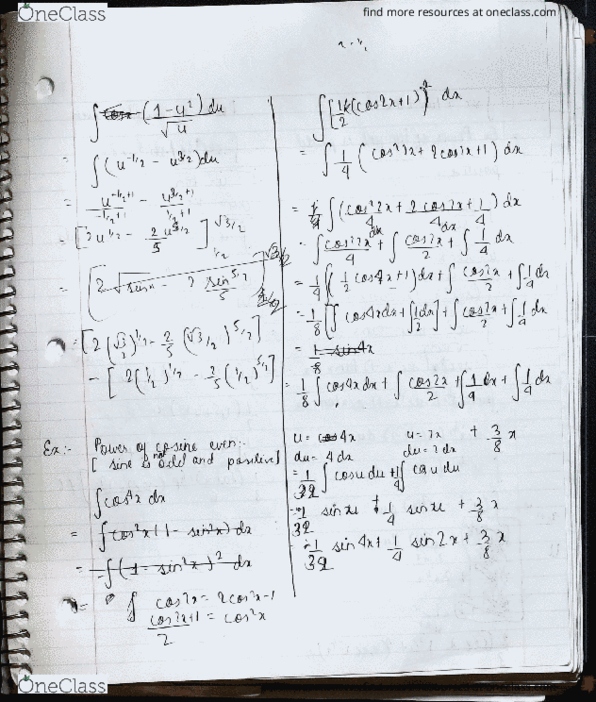 OneClass
find more resources at oneclass.com
∫ (1-u²) du / √u
= ∫ (u^-1/2 - u^3/2) du
= u^-1/2+1 / -1/2+1 - u^3/2+1
= [2u^1/2 - 2/5 u^5/2] √3/2 1/2
= [2√sinx - 2 sin^5/2 / 5
= [2(√3/2)^1/2 - 2/5 (√3/2)^5/2]
- [2(1/2)^1/2 - 2/5 (1/2)^5/2]
Ex:- Power of cosine even:-
[sine is not odd and positive]
∫cos⁴x dx
= ∫cos²x(1-sin²x) dx
= ∫(1-sin²x)² dx
cos2x = 2cos²x-1
cos2x+1 / 2 = cos²x
∫[1/2 (cos2x+1)]² dx
= ∫ 1/4 (cos²2x + 2cos2x + 1) dx
= ∫(cos²2x/4 + 2cos2x/4 + 1/4) dx
= ∫cos²2x/4 dx + ∫cos2x/2 dx + ∫1/4 dx
= 1/4 ∫(1/2 cos4x+1) dx + ∫cos2x/2 + ∫1/4 dx
= 1/8 [∫cos4x dx + ∫1/2 dx] + ∫cos2x/2 + ∫1/4 dx
= 1/8 sin4x
= 1/8 ∫cos4x dx + ∫cos2x/2 + ∫1/4 dx + ∫1/4 dx
u = 4x u = 2x + 3/8 x
du = 4dx du = 2dx
= 1/32 ∫cosu du + 1/4 ∫cosu du
= 1/32 sinu + 1/4 sinu + 3/8 x
= 1/32 sin4x + 1/4 sin2x + 3/8 x
OneClass